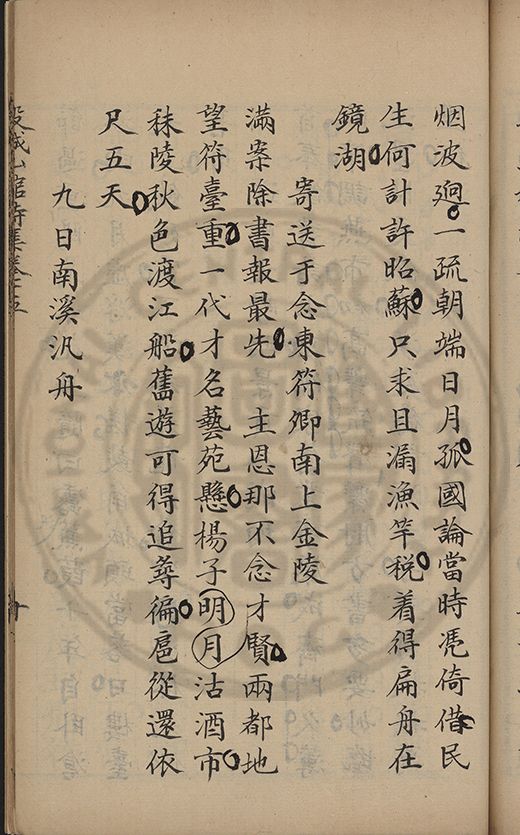 烟波迥一疏朝端日月孤國論當時凴倚借民
生何計許昭蘇只求且漏漁竿税着得扁舟在
鏡湖
寄送于念東符卿南上金陵
滿案除書報最先 主恩那不念才賢兩都地
望符臺重一代才名藝苑懸楊子明月沽酒市
秣陵秋色渡江船舊遊可得追尋徧扈從還依
尺五天
九日南溪汎舟
穀城山館詩集卷十五